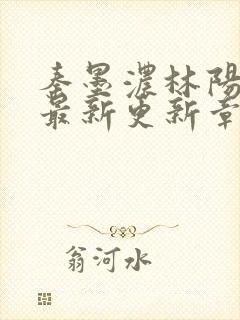 秦墨濃林陽
最新更新章
翁河水